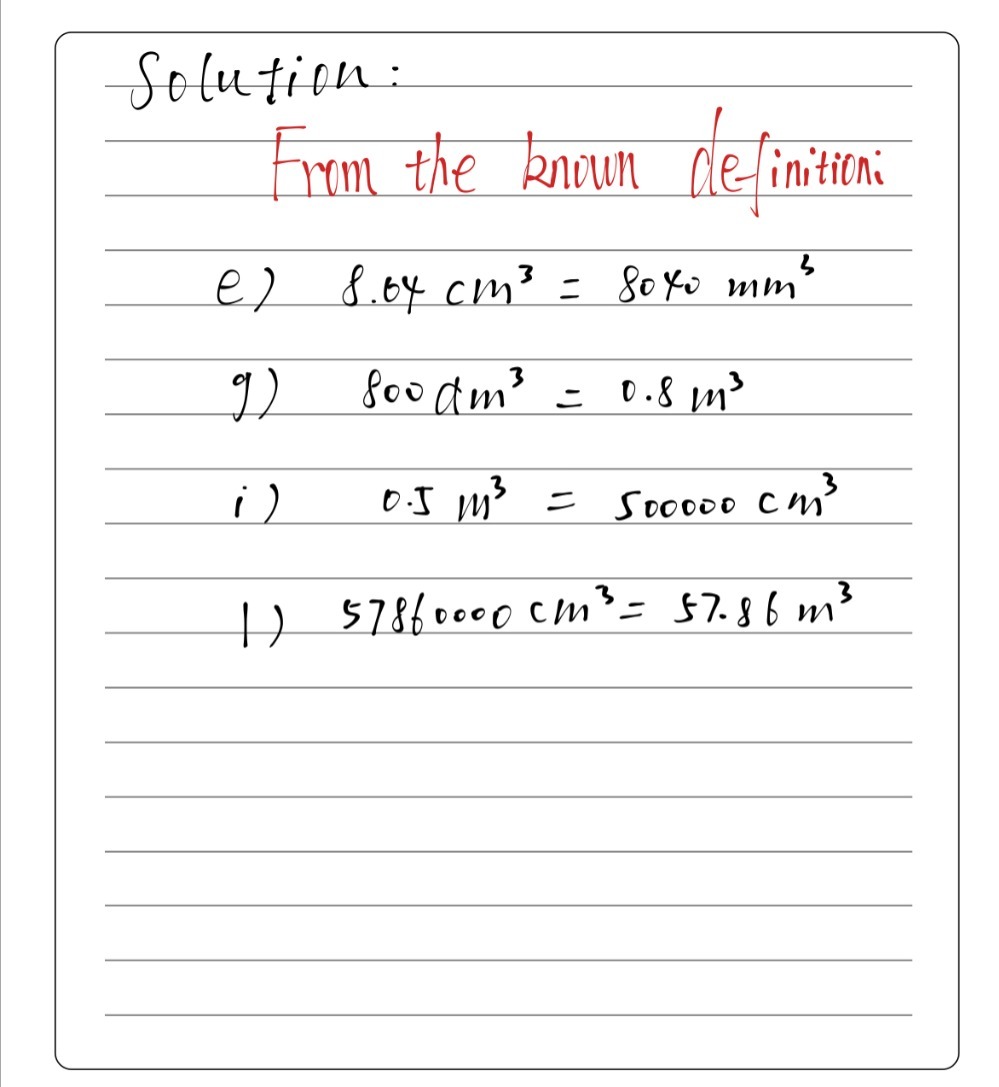 Solution:
From the known definition:
e) 8.04 cm³ = 8040 mm³
g) 800 dm³ = 0.8 m³
i) 0.5 m³ = 500000 cm³
l) 57860000 cm³ = 57.86 m³